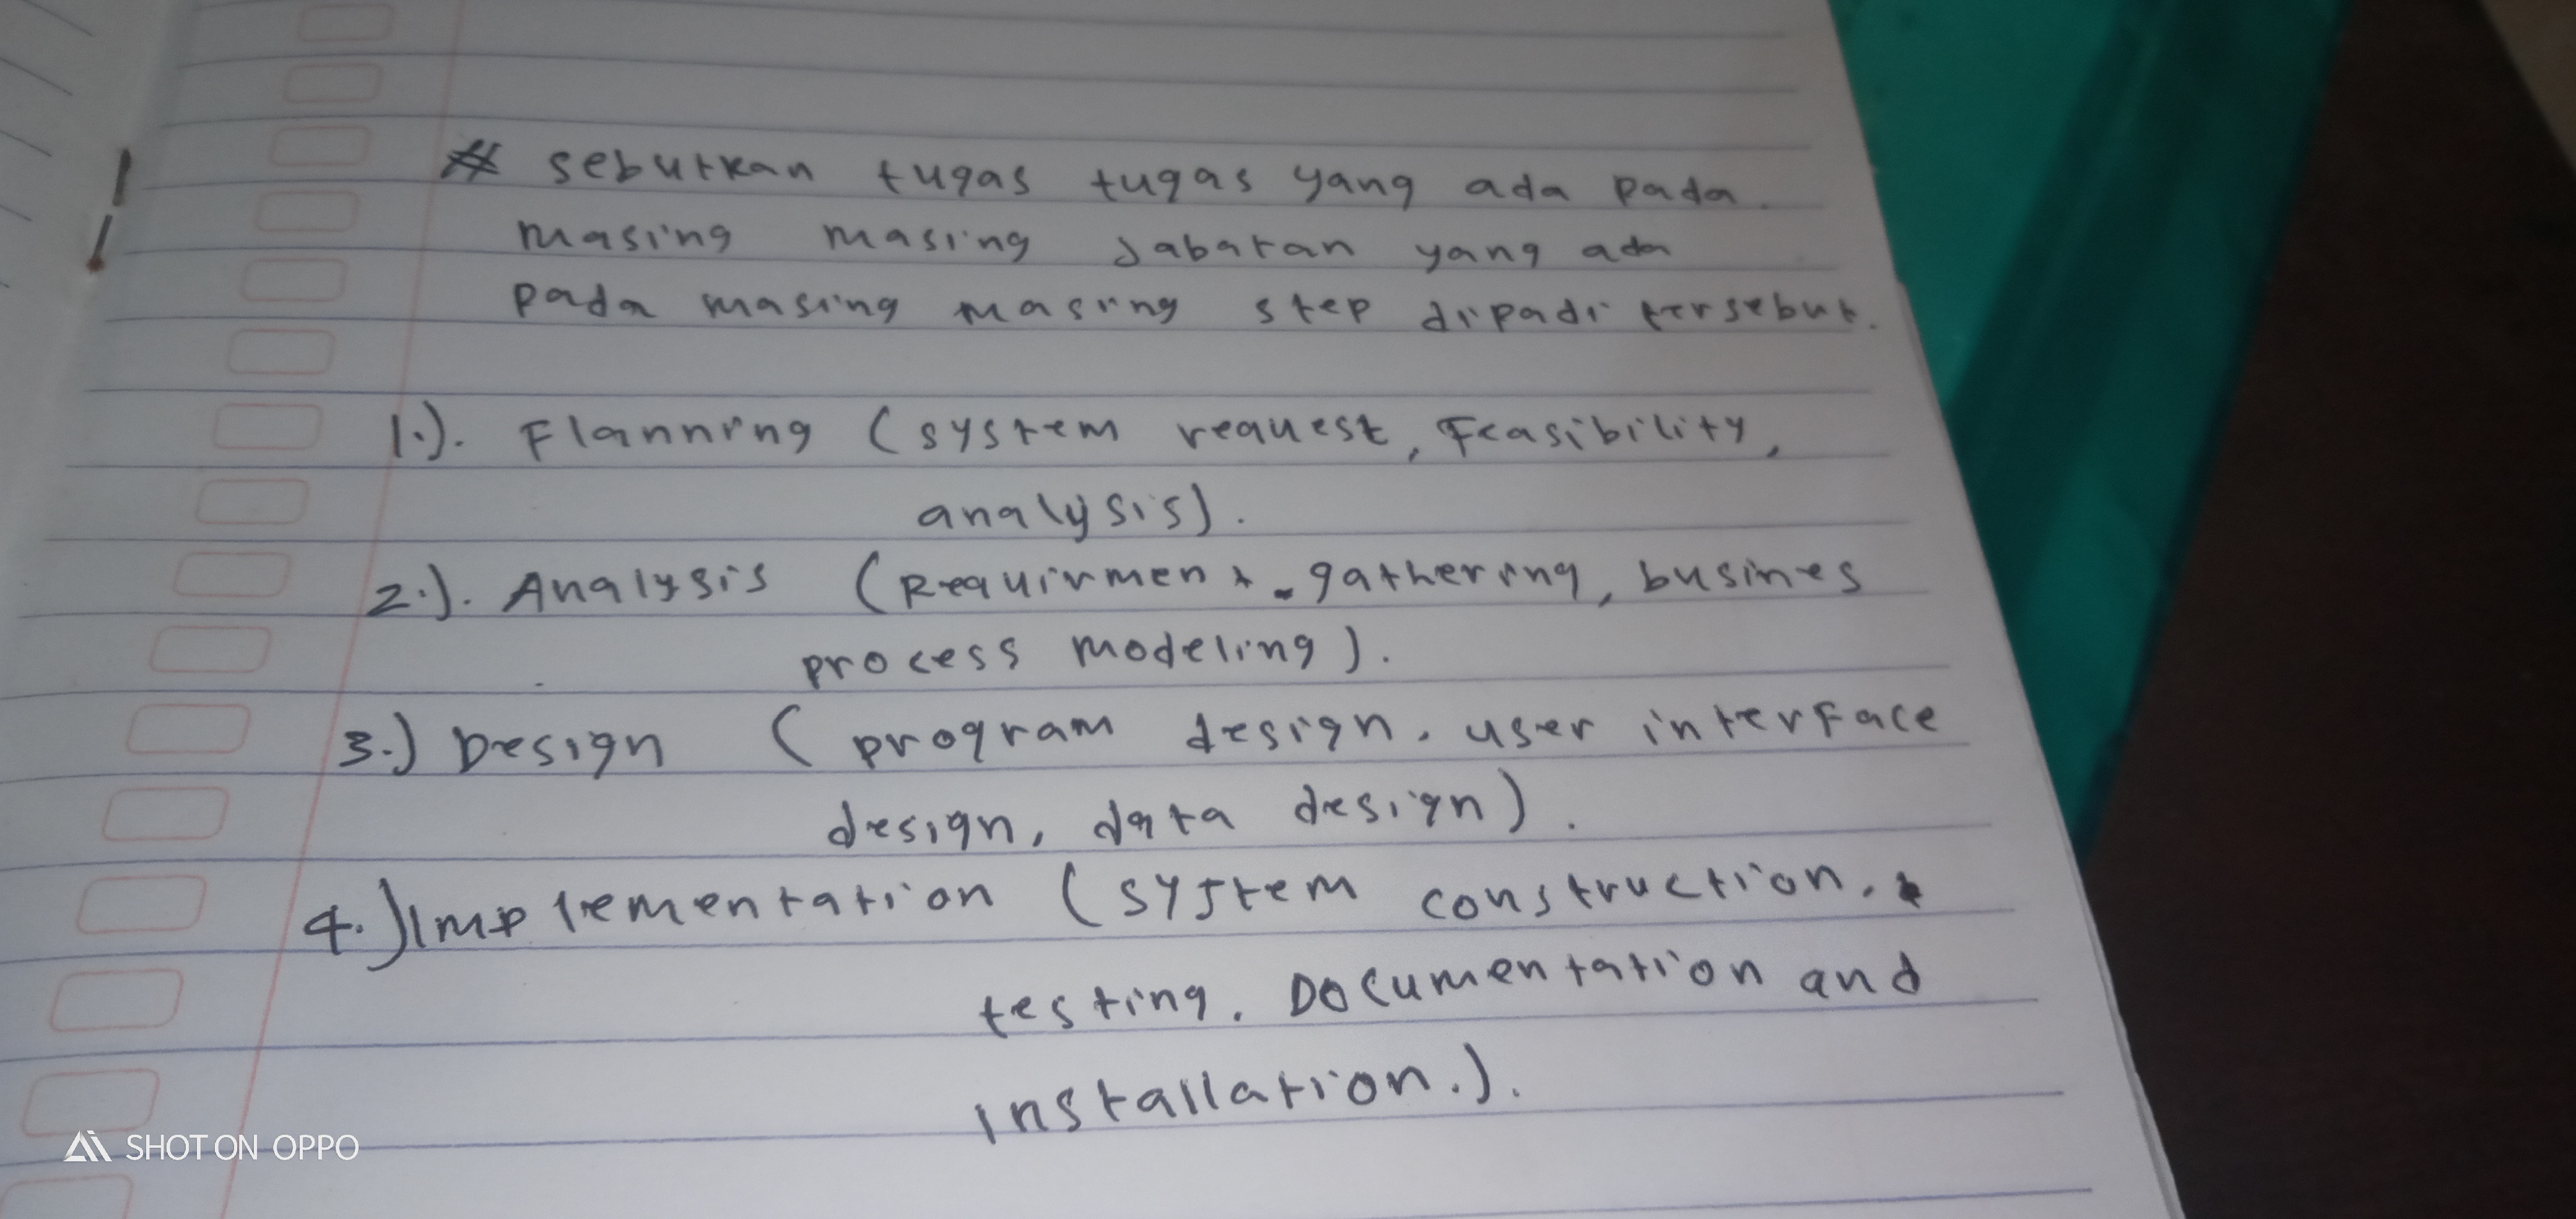 # sebutkan tugas tugas yang ada pada
masing masing jabatan yang ada
pada masing masing step dipadi tersebut.
1.). Flanning (system request, Feasibility,
analysis).
2.). Analysis (Requirment gathering, busines
process modeling).
3.) Design (program design, user interface
design, data design).
4.) Implementation (system construction,
testing, Documentation and
installation.).
SHOT ON OPPO